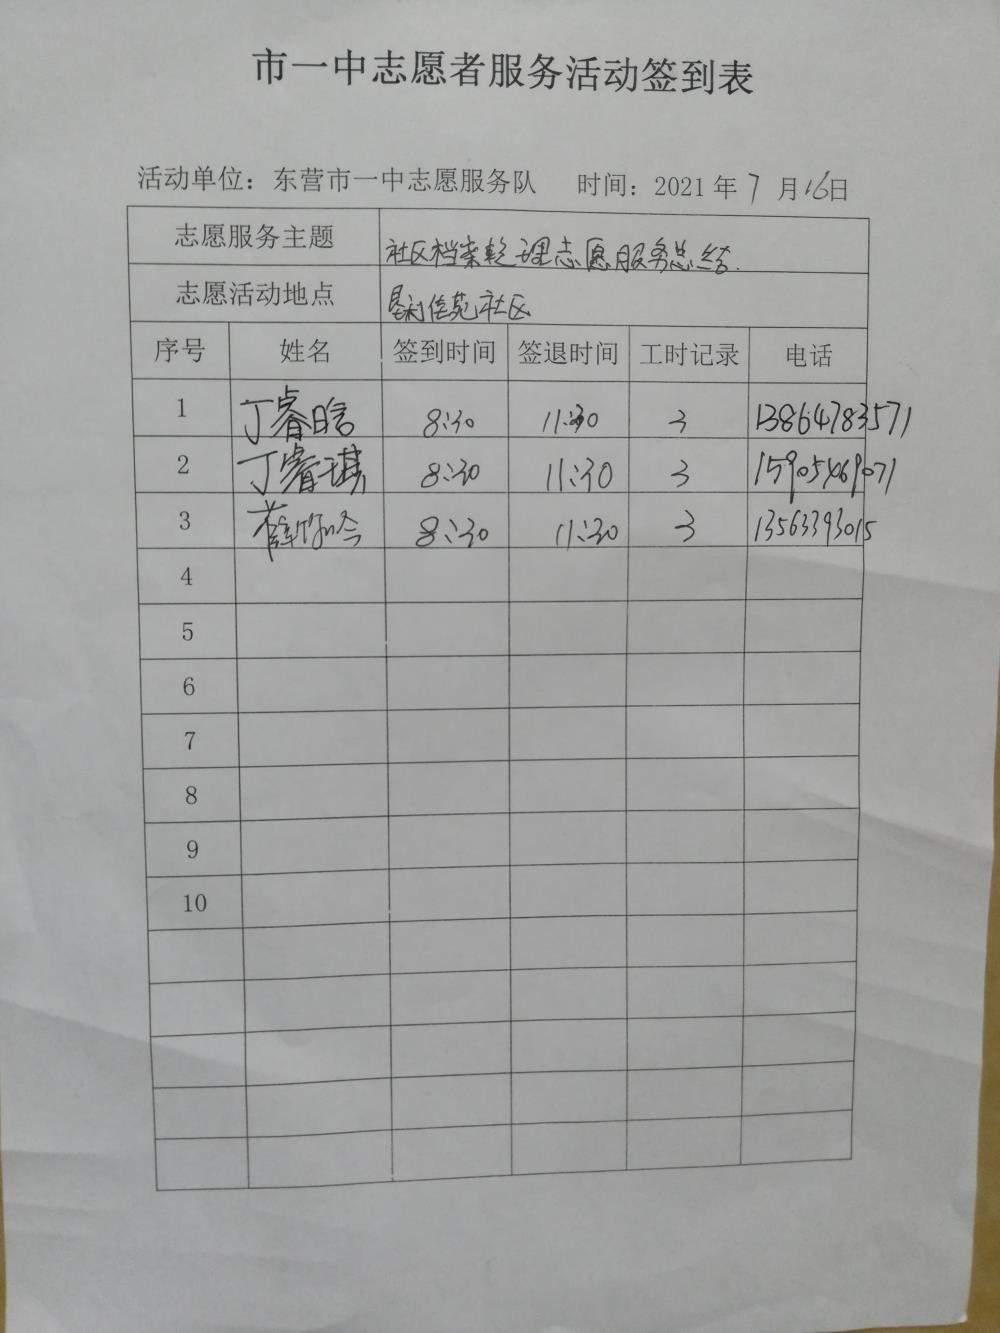 市一中志愿者服务活动签到表
活动单位：东营市一中志愿服务队 时间：2021年7月16日
志愿服务主题 社区档案整理志愿服务总结.
志愿活动地点 垦利信苑社区
序号 姓名 签到时间 签退时间 工时记录 电话
1 丁睿晗 8:30 11:30 3 13864783571
2 丁睿琪 8:30 11:30 3 15905469071
3 薛 8:30 11:30 3 13563393015
4
5
6
7
8
9
10